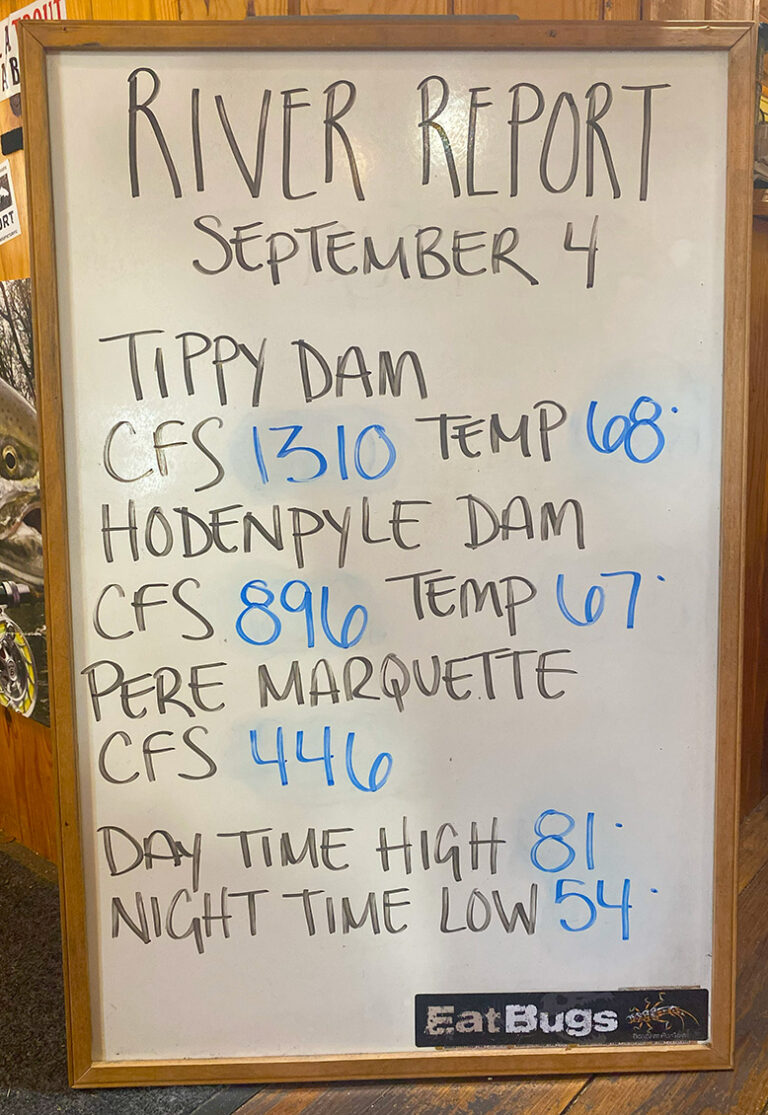 RIVER REPORT
SEPTEMBER 4
TIPPY DAM
CFS 1310 TEMP 68°
HODENPYLE DAM
CFS 896 TEMP 67°
PERE MARQUETTE
CFS 446
DAY TIME HIGH 81°
NIGHT TIME LOW 54°
EatBugs